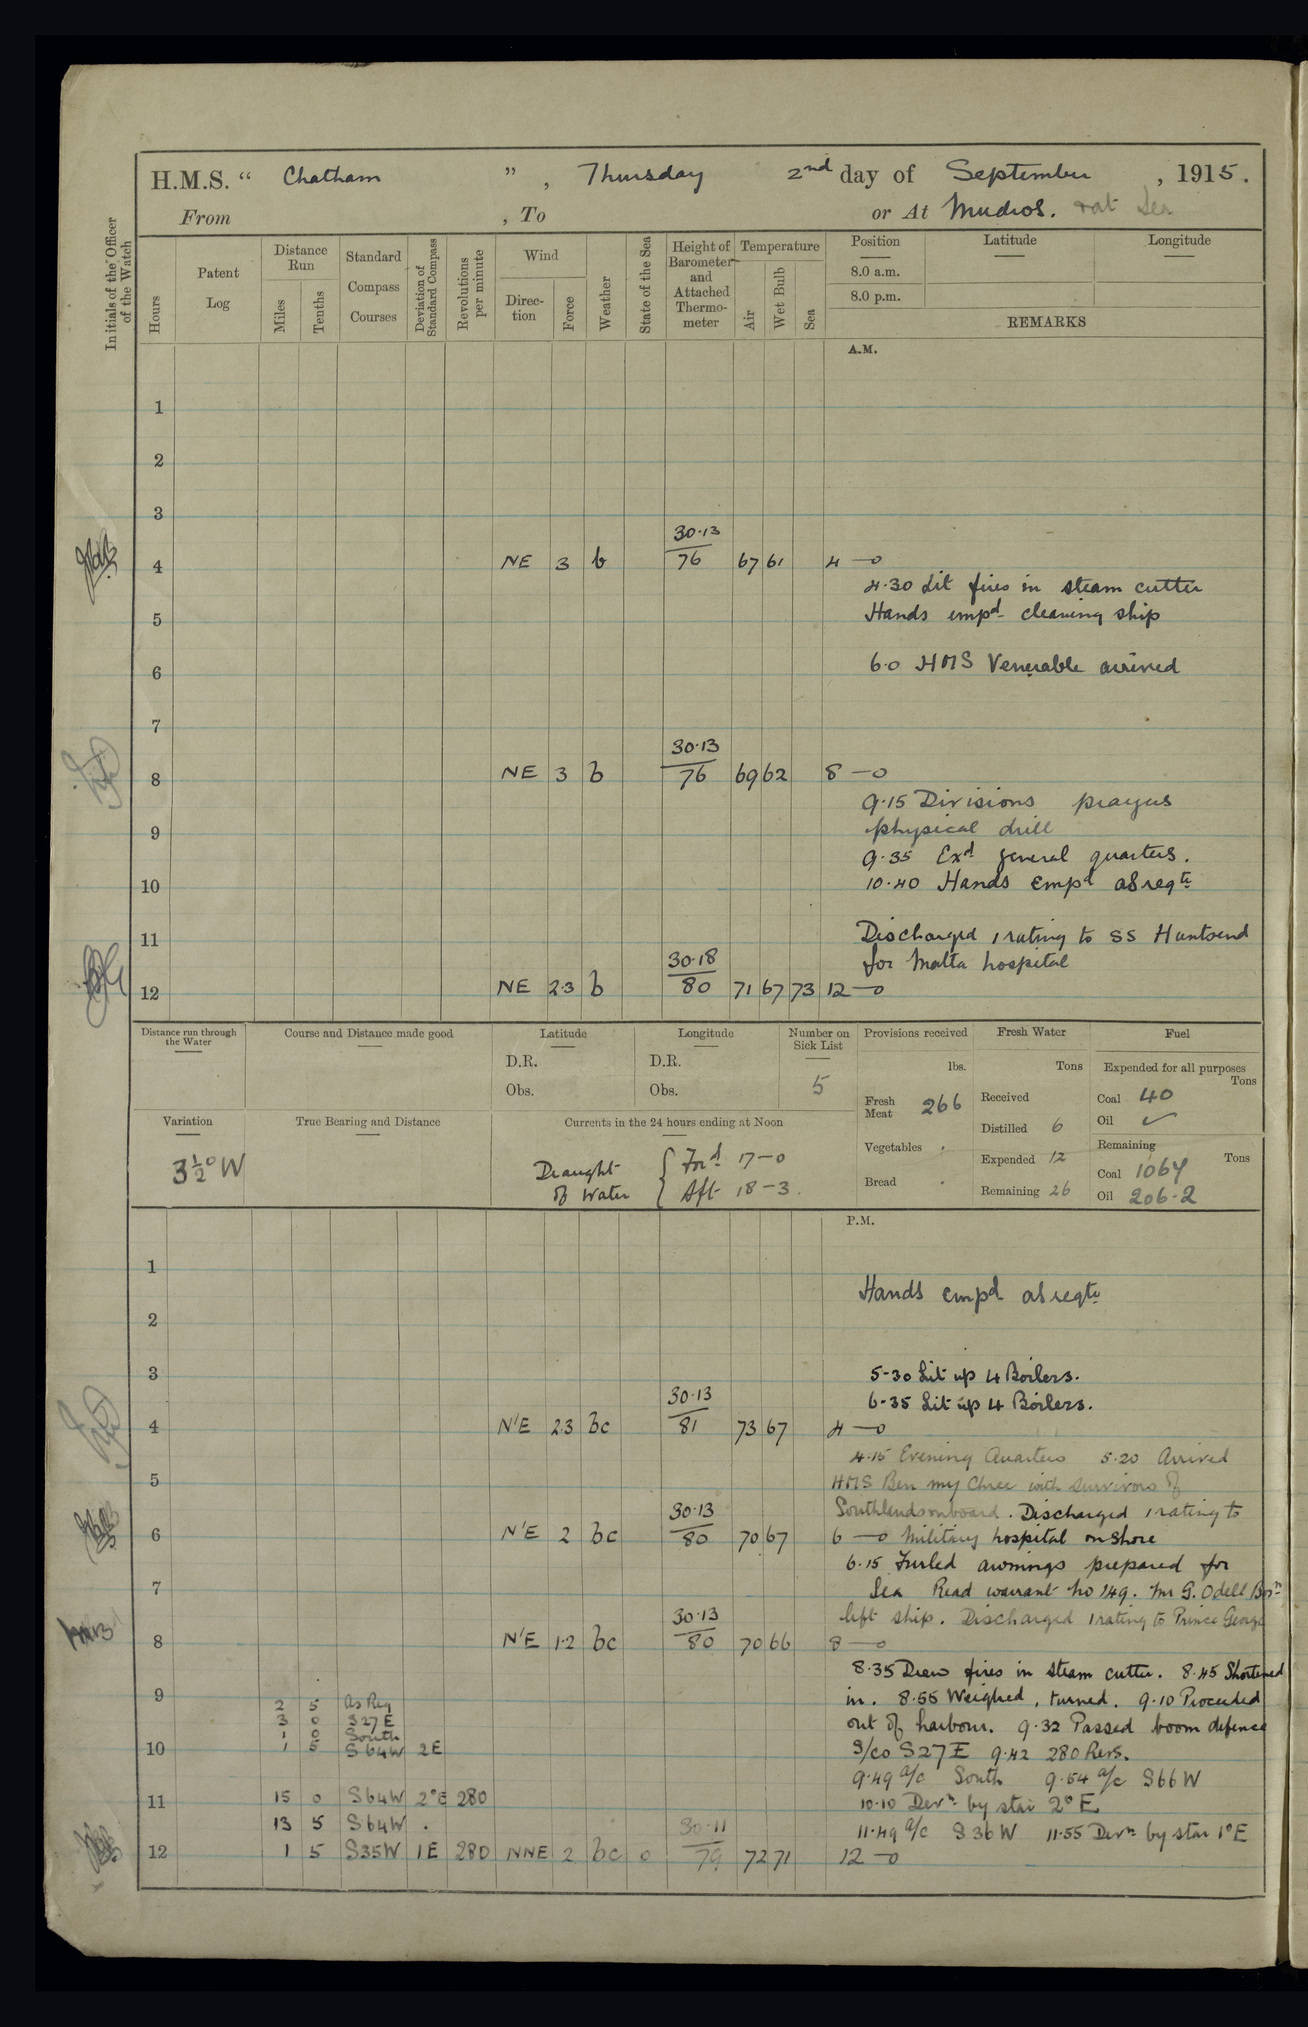 H.M.S. “ Chatham ” , Thursday 2nd day of September , 1915.
From , To or At Mudros. & at Sea
Initials of the Officer of the Watch
Hours
Patent Log
Distance Run
Miles
Tenths
Standard Compass Courses
Deviation of Standard Compass
Revolutions per minute
Wind
Direction
Force
Weather
State of the Sea
Height of Barometer and Attached Thermometer
Temperature
Air
Wet Bulb
Sea
Position
Latitude
Longitude
8.0 a.m.
8.0 p.m.
REMARKS
A.M.
1
2
3
30.13
4 NE 3 b 76 67 61 4 —o
4.30 Lit fires in steam cutter
5 Hands empd cleaning ship
6 6.0 HMS Venerable arrived
7
30.13
8 NE 3 b 76 69 62 8 —o
9.15 Divisions prayers
9 physical drill
9.35 Exd general quarters.
10 10.40 Hands empd as reqte
11 Discharged 1 rating to SS Huntsend
30.18 for Malta hospital
12 NE 2.3 b 80 71 67 73 12 —o
Distance run through the Water
Course and Distance made good
Latitude
D.R.
Obs.
Longitude
D.R.
Obs.
Number on Sick List
5
Provisions received
lbs.
Fresh Meat 266
Vegetables .
Bread .
Fresh Water
Tons
Received
Distilled 6
Expended 12
Remaining 26
Fuel
Expended for all purposes
Tons
Coal 40
Oil ✓
Remaining
Tons
Coal 1064
Oil 206.2
Variation
3½° W
True Bearing and Distance
Currents in the 24 hours ending at Noon
Draught of Water { Ford 17-0
Aft 18-3.
P.M.
1
Hands empd as reqte
2
3 5-30 Lit up 4 Boilers.
30.13 6-35 Lit up 4 Boilers.
4 N'E 2.3 bc 81 73 67 4 —o
4.15 Evening Quarters 5.20 Arrived
5 HMS Ben my Chree with survivors of
30.13 Southland onboard. Discharged 1 rating to
6 N'E 2 bc 80 70 67 6 —o Military hospital on shore
6.15 Furled awnings prepared for
7 Sea Read warrant No 149. Mr G. Odell Bosn
30.13 left ship. Discharged 1 rating to Prince George
8 N'E 1.2 bc 80 70 66 8 —o
8.35 Drew fires in steam cutter. 8.45 Shortened
9 2 5 As Req in. 8.55 Weighed, turned. 9.10 Proceeded
3 0 S27E out of harbour. 9.32 Passed boom defence
1 0 South
10 1 5 S64W 2E S/co S27E 9.42 280 Revs.
9.49 a/c South 9.54 a/c S66W
11 15 0 S64W 2°E 280 10.10 Devn by star 2°E
13 5 S64W . 30.11 11.49 a/c S36W 11.55 Devn by star 1°E
12 1 5 S35W 1E 280 NNE 2 bc 0 79 72 71 12 —o